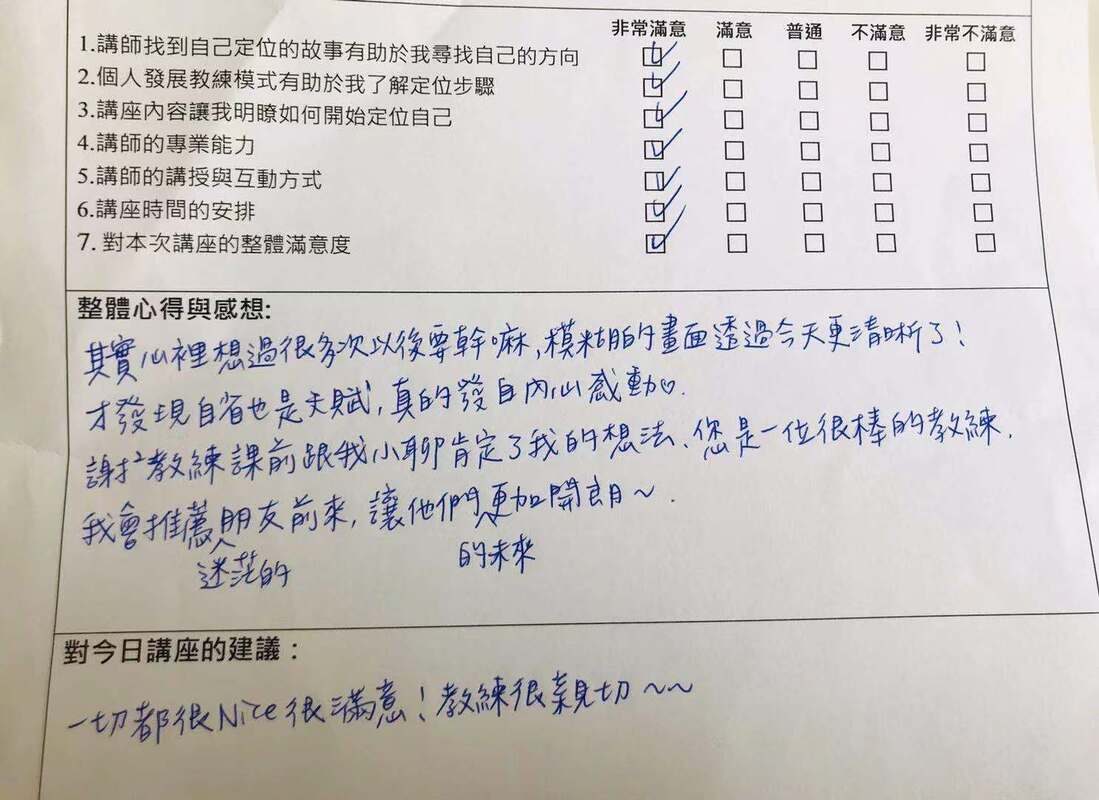 非常滿意 滿意 普通 不滿意 非常不滿意
1.講師找到自己定位的故事有助於我尋找自己的方向 ☑ □ □ □ □
2.個人發展教練模式有助於我了解定位步驟 ☑ □ □ □ □
3.講座內容讓我明瞭如何開始定位自己 ☑ □ □ □ □
4.講師的專業能力 ☑ □ □ □ □
5.講師的講授與互動方式 ☑ □ □ □ □
6.講座時間的安排 ☑ □ □ □ □
7. 對本次講座的整體滿意度 ☑ □ □ □ □
整體心得與感想:
其實心裡想過很多次以後要幹嘛,模糊的畫面透過今天更清晰了!
才發現自省也是天賦,真的發自內心感動♡.
謝謝教練課前跟我小聊肯定了我的想法、您是一位很棒的教練.
我會推薦朋友前來,讓他們更加開朗~.
迷茫的 的未來
對今日講座的建議:
一切都很Nice很滿意!教練很親切~~